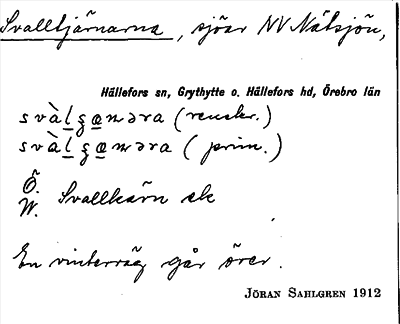 Svalltjärnarna, sjöar NV Nätsjön,
Hällefors sn, Grythytte o. Hällefors hd, Örebro län
(renskr.)
(prim.)
Ö.
W. Svallkärn ek
En vinterväg går över.
JÖRAN SAHLGREN 1912